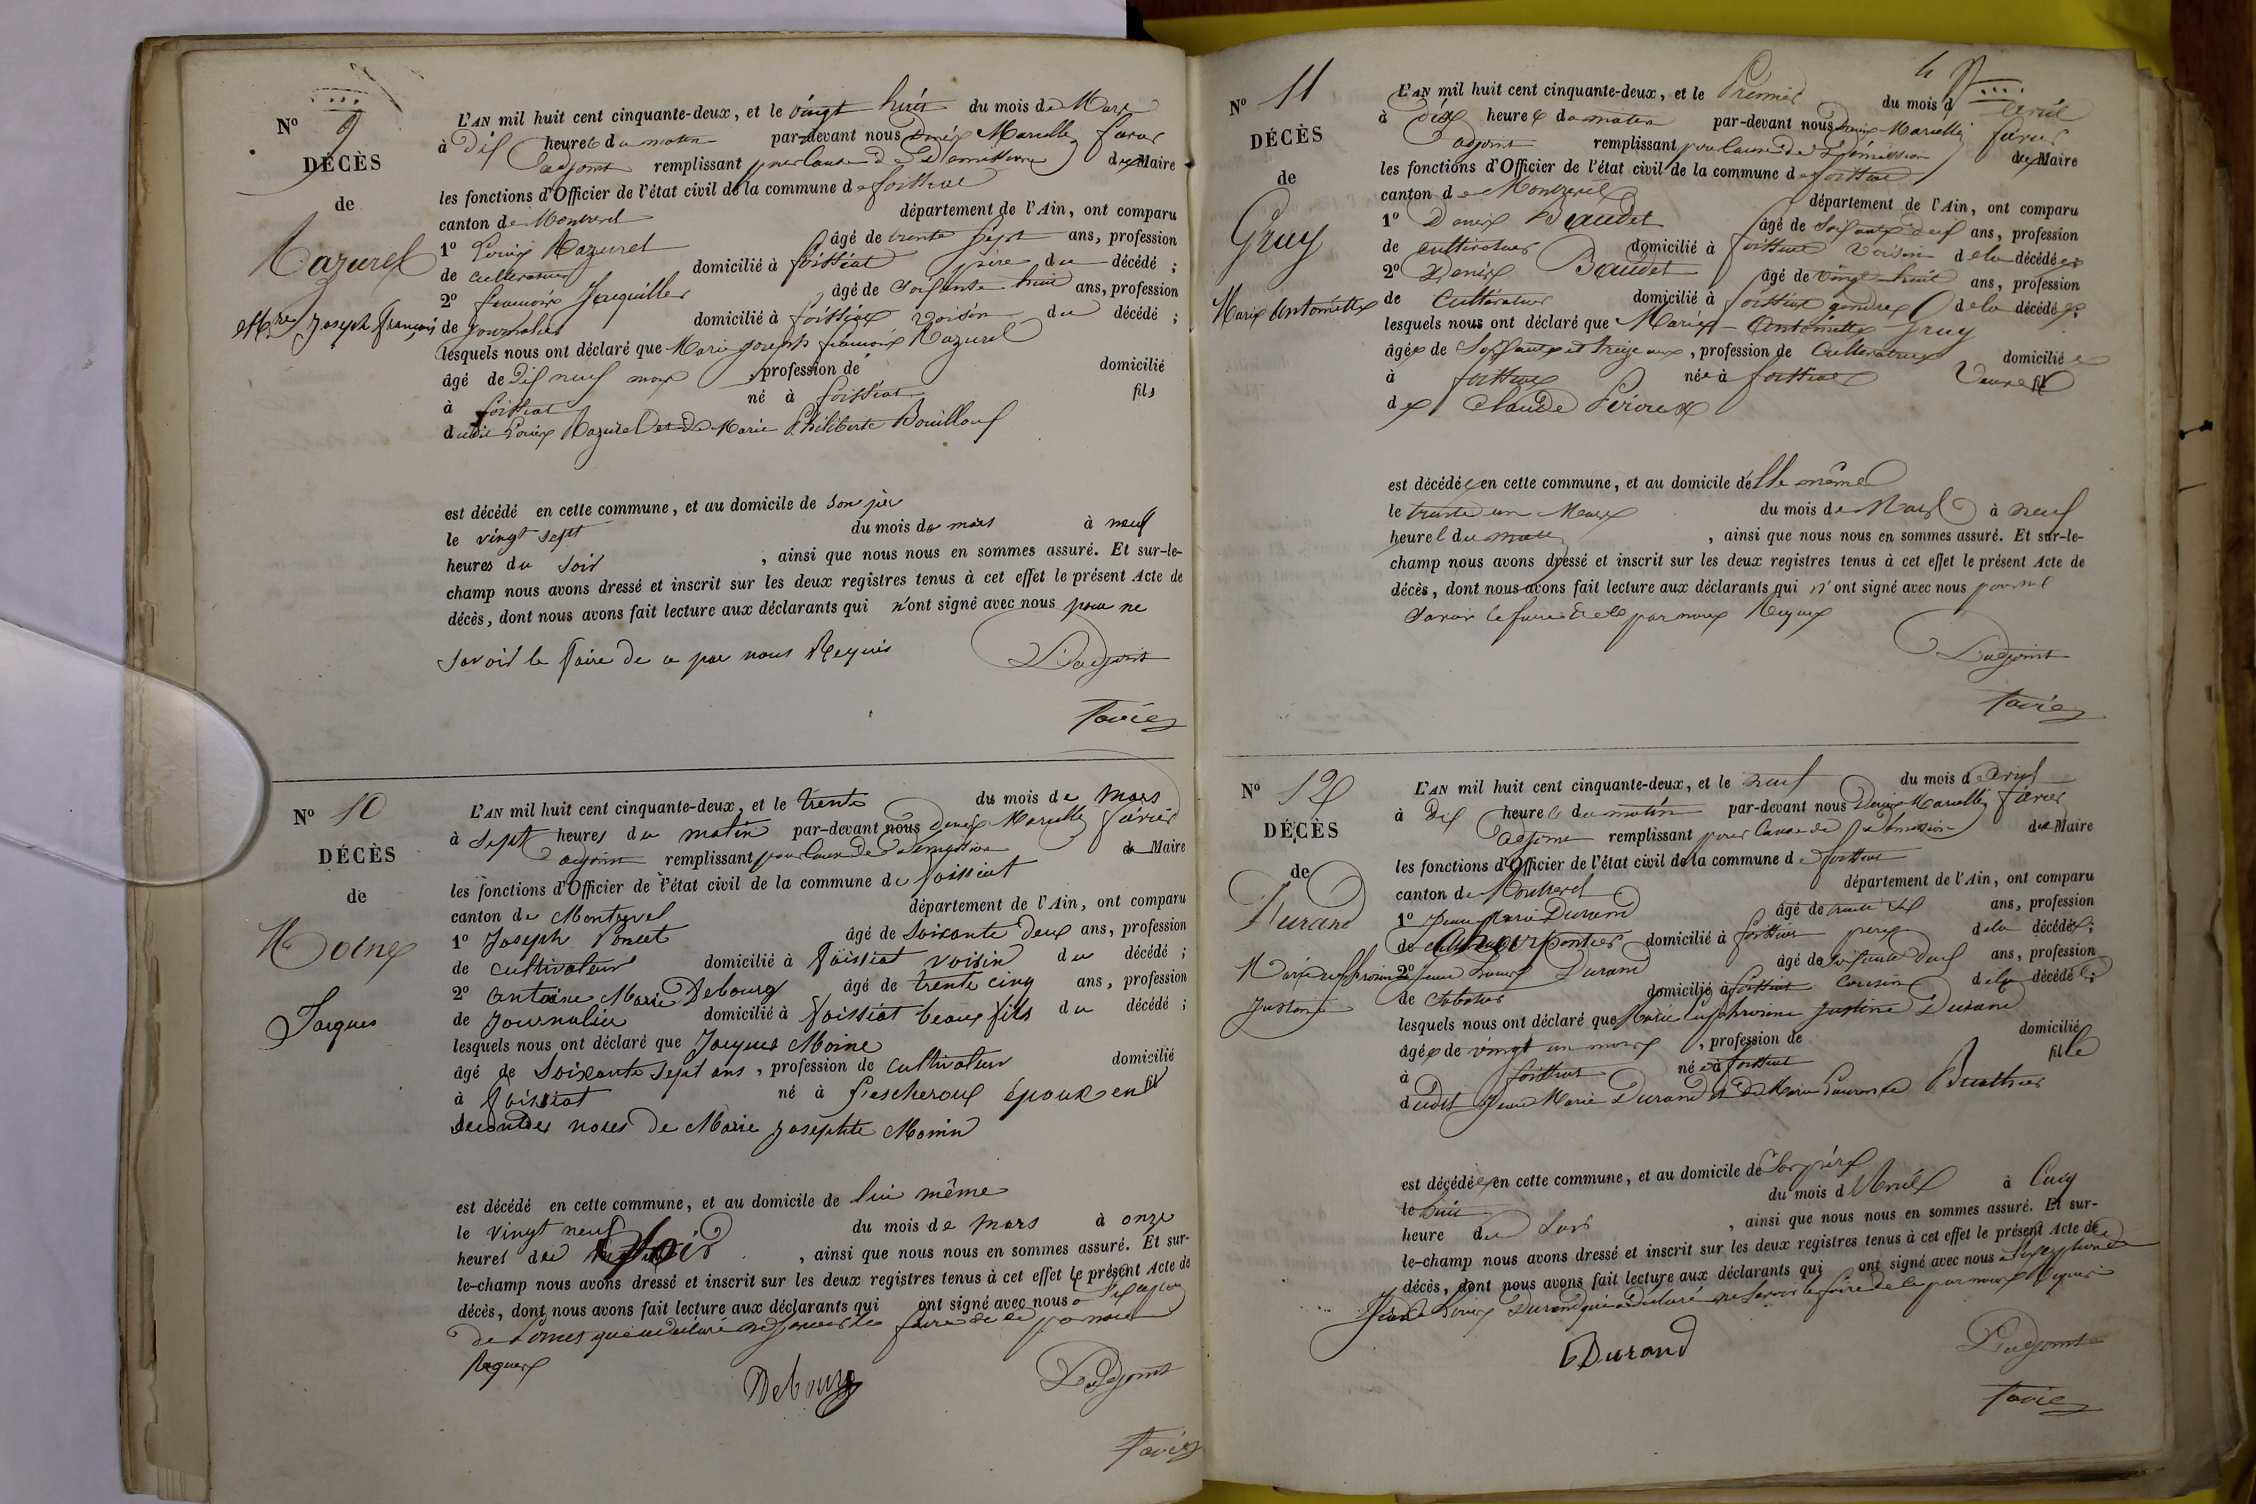 N° 9
DÉCÈS
de
Mazuret
Mie Joseph françois
L'AN mil huit cent cinquante-deux, et le vingt huit du mois de Mars
à Dix heures du matin par-devant nous Denis Marcelly favier
adjoint remplissant pour cause de démission du Maire
les fonctions d'Officier de l'état civil de la commune de foissiat
canton de Montrevel département de l'Ain, ont comparu
1° Louis Mazuret âgé de trente sept ans, profession
de cultivateur domicilié à foissiat père du décédé ;
2° françois Jacquiller âgé de soixante huit ans, profession
de journalier domicilié à foissiat voisin du décédé ;
lesquels nous ont déclaré que Marie joseph francois Mazuret
âgé de Dix neuf mois , profession de domicilié
à foissiat né à foissiat fils
dudit Louis Mazuret et de Marie Philiberte Bouilloux
est décédé en cette commune, et au domicile de son père
le vingt sept du mois de mars à neuf
heures du soir , ainsi que nous nous en sommes assuré. Et sur-le-
champ nous avons dressé et inscrit sur les deux registres tenus à cet effet le présent Acte de
décès, dont nous avons fait lecture aux déclarants qui n'ont signé avec nous pour ne
savoir le faire de ce par nous Requis
L'adjoint
favier
N° 10
DÉCÈS
de
Moine
Jacques
L'AN mil huit cent cinquante-deux, et le trente du mois de Mars
à sept heures du matin par-devant nous denis Marcelly favier
adjoint remplissant pour cause de démission du Maire
les fonctions d'Officier de l'état civil de la commune de foissiat
canton de Montrevel département de l'Ain, ont comparu
1° Joseph Poncet âgé de soixante deux ans, profession
de cultivateur domicilié à foissiat voisin du décédé ;
2° Antoine Marie Debourg âgé de trente cinq ans, profession
de journalier domicilié à foissiat beaux fils du décédé ;
lesquels nous ont déclaré que Jacques Moine
âgé de soixante sept ans , profession de cultivateur domicilié
à foissiat né à Lescheroux époux en fil
secondes noces de Marie Josephte Monin
est décédé en cette commune, et au domicile de lui même
le vingt neuf du mois de mars à onze
heures du soir , ainsi que nous nous en sommes assuré. Et sur-
le-champ nous avons dressé et inscrit sur les deux registres tenus à cet effet le présent Acte de
décès, dont nous avons fait lecture aux déclarants qui ont signé avec nous a l'exception
de Poncet qui a déclaré ne savoir le faire de ce par nous
Requis
Debourg
L'adjoint
favier
N° 11
DÉCÈS
de
Gruy
Marie Antoinette
4
L'AN mil huit cent cinquante-deux, et le Premier du mois d'avril
à Dix heures du matin par-devant nous denis Marcelly favier
adjoint remplissant pour cause de démission du Maire
les fonctions d'Officier de l'état civil de la commune de foissiat
canton de Montrevel département de l'Ain, ont comparu
1° Denis Baudet âgé de soixante deux ans, profession
de cultivateur domicilié à foissiat voisin de la décédée
2° Denis Baudet âgé de vingt huit ans, profession
de cultivateur domicilié à foissiat gendre de la décédée ;
lesquels nous ont déclaré que Marie Antoinette Gruy
âgée de soixante et treize ans , profession de Cultivatrice domiciliée
à foissiat née à foissiat veuve fil
de Claude Perdrix
est décédée en cette commune, et au domicile d'elle même
le trente un Mars du mois de Mars à neuf
heures du matin , ainsi que nous nous en sommes assuré. Et sur-le-
champ nous avons dressé et inscrit sur les deux registres tenus à cet effet le présent Acte de
décès, dont nous avons fait lecture aux déclarants qui n'ont signé avec nous pour ne
savoir le faire de ce par nous Requis
L'adjoint
favier
N° 12
DÉCÈS
de
Durand
Marie euphrosine
Justine
L'AN mil huit cent cinquante-deux, et le neuf du mois d'avril
à Dix heures du matin par-devant nous Denis Marcelly favier
adjoint remplissant pour cause de démission du Maire
les fonctions d'Officier de l'état civil de la commune de foissiat
canton de Montrevel département de l'Ain, ont comparu
1° Jean Marie Durand âgé de trente six ans, profession
de charpentier domicilié à foissiat père de la décédée ;
2° Jean Louis Durand âgé de soixante deux ans, profession
de sabotier domicilié à foissiat cousin de la décédée ;
lesquels nous ont déclaré que Marie euphrosine justine Durand
âgée de vingt un mois , profession de domicilié
à foissiat née à foissiat fille
dudit Jean Marie Durand et de Marie Laurence Buathier
est décédée en cette commune, et au domicile de son père
le huit du mois d'Avril à Cinq
heure du soir , ainsi que nous nous en sommes assuré. Et sur-
le-champ nous avons dressé et inscrit sur les deux registres tenus à cet effet le présent Acte de
décès, dont nous avons fait lecture aux déclarants qui ont signé avec nous a l'exception de
Jean Louis Durand qui a déclaré ne savoir le faire de ce par nous Requis
Durand
L'adjoint
favier